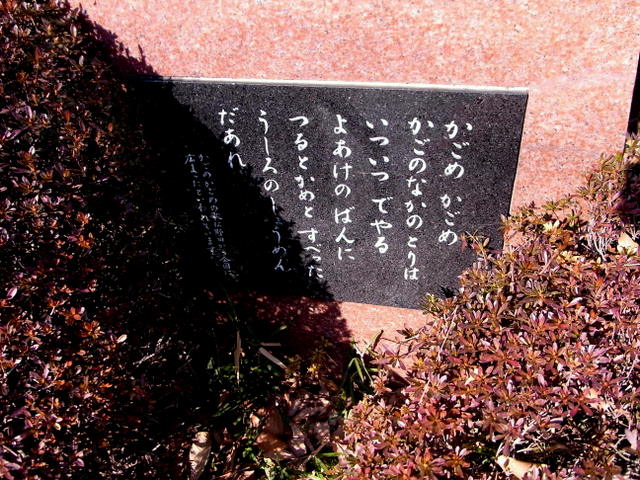 かごめ かごめ
かごのなかのとりは
いついつ でやる
よあけの ばんに
つるとかめと すべった
うしろの しょうめん
だあれ